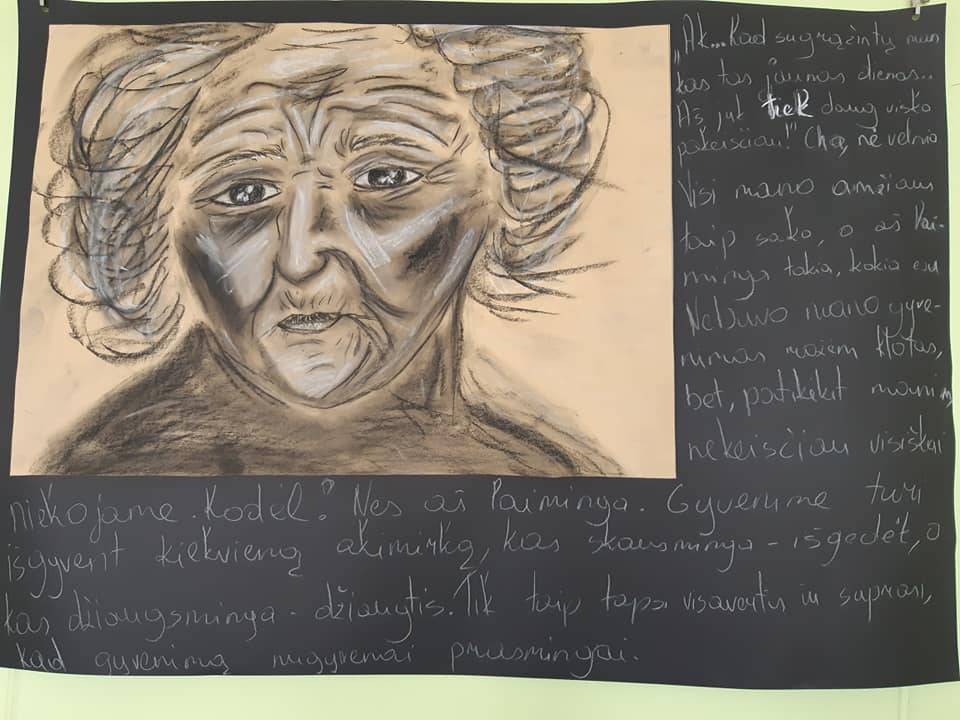 „Ak...Kad sugrąžintų man
kas tas jaunas dienas..
Aš juk tiek daug visko
pakeisčiau!" Cha, nė velnio
Visi mano amžiaus
taip sako, o aš lai-
minga tokia, kokia esu
Nebuvo mano gyve-
nimas rožėm klotas,
bet, patikėkit manim,
nekeisčiau visiškai
niekojame. Kodėl? Nes aš laiminga. Gyvenime turi
išgyvent kiekvieną akimirką, kas skausminga - išgedėt, o
kas džiaugsminga - džiaugtis. Tik taip tapsi visavertis ir suprasi,
kad gyvenimą nugyvenai prasmingai.